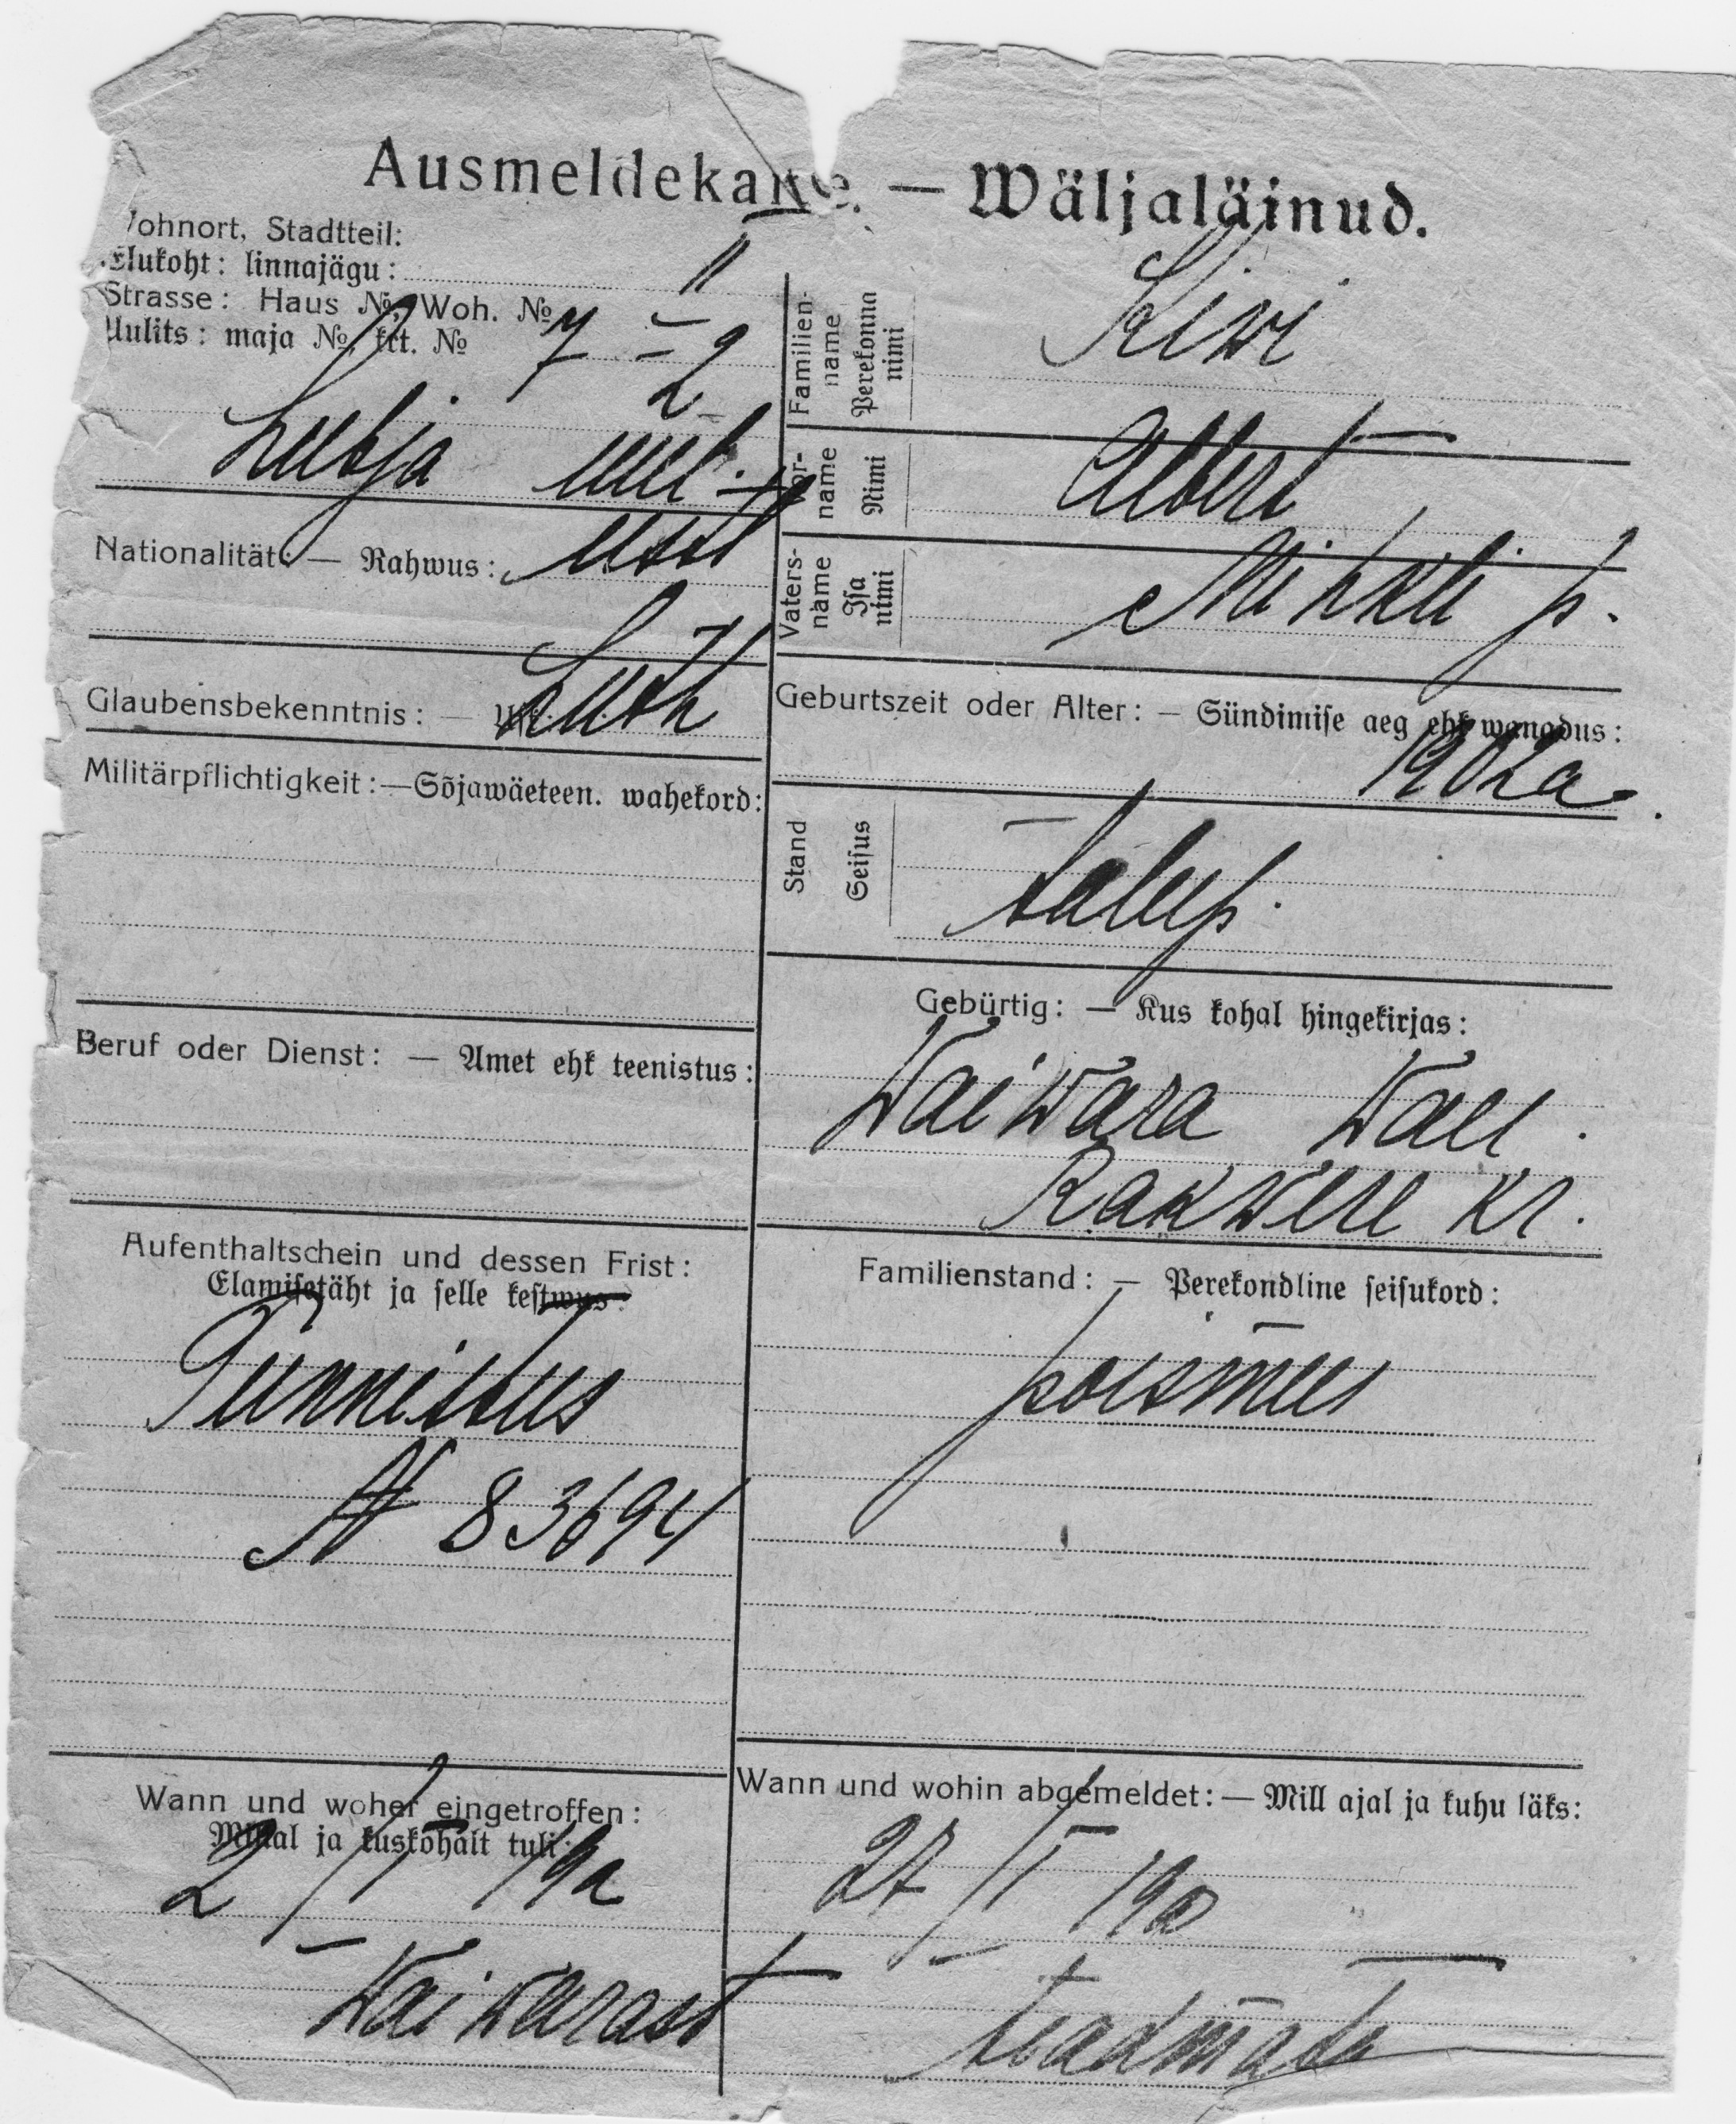 Ausmeldekarte. — Wäljaläinud.
Wohnort, Stadtteil:
Elukoht: linnajägu:
II
Strasse: Haus №, Woh. №
Uulits: maja №, krt. №
7 – 2
Lubja uul.
Nationalität: — Rahwus: eest
Glaubensbekenntnis: — Luth
Militärpflichtigkeit: — Sõjawäeteen. wahekord:
Beruf oder Dienst: — Amet ehk teenistus:
Aufenthaltschein und dessen Frist:
Elamisetäht ja selle kestwus:
Tunnistus
№ 83694
Wann und woher eingetroffen:
Millal ja kuskohalt tuli:
2/I 19a
Waiwarast
Familien-name Perekonna nimi
Kiwi
Vor-name Nimi
Albert
Vaters-name Isa nimi
Mihkli p.
Geburtszeit oder Alter: — Sündimise aeg ehk wanadus:
1902a.
Stand Seisus
talup.
Gebürtig: — Kus kohal hingekirjas:
Waiwara wall.
Rakwere kr.
Familienstand: — Perekondline seisukord:
poismees
Wann und wohin abgemeldet: — Mill ajal ja kuhu läks:
27/I 19a
teadmata